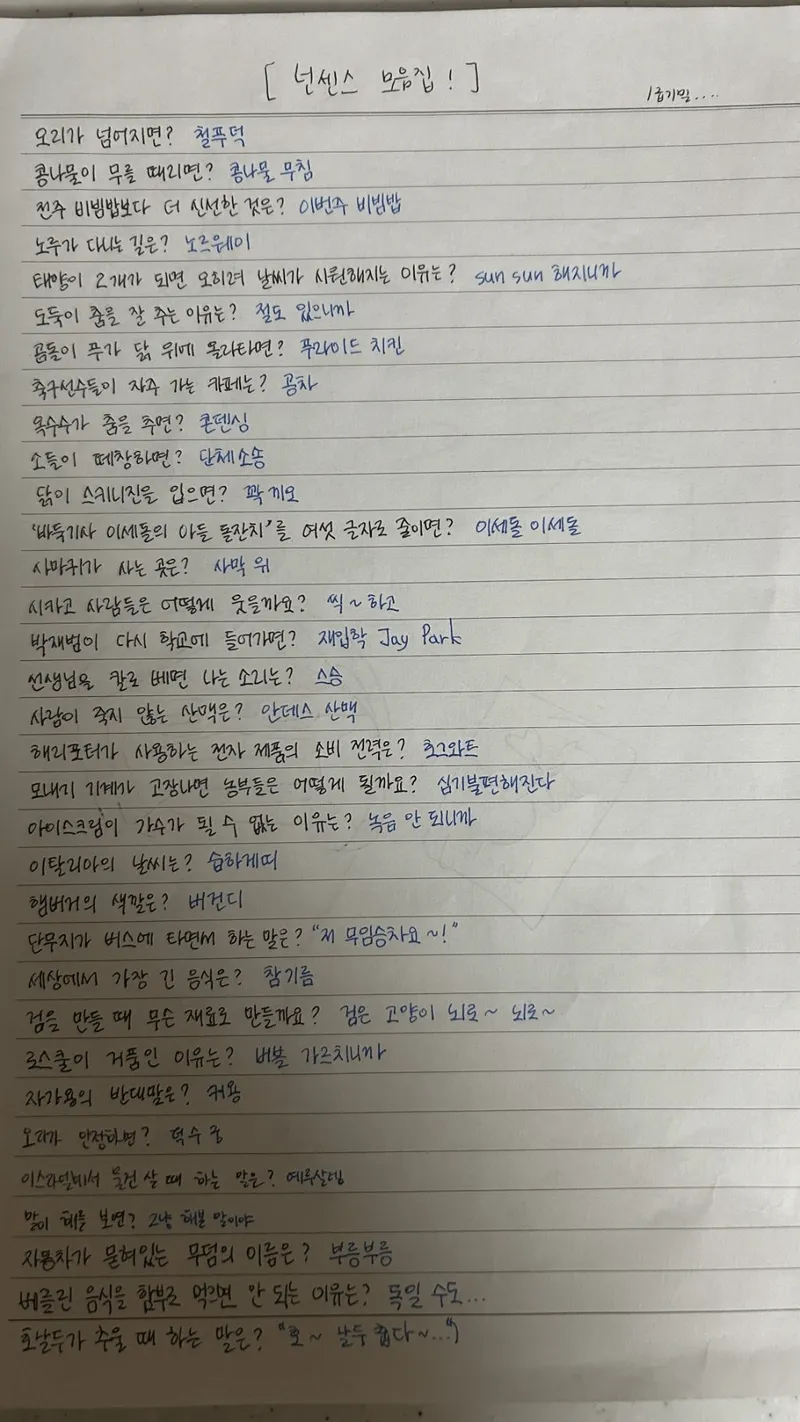 [ 넌센스 모음집 ! ]
1급기밀....
오리가 넘어지면? 철푸덕
콩나물이 무를 때리면? 콩나물 무침
전주 비빔밥보다 더 신선한 것은? 이번주 비빔밥
노루가 다니는 길은? 노르웨이
태양이 2개가 되면 오히려 날씨가 시원해지는 이유는? sun sun 해지니까
도둑이 춤을 잘 추는 이유는? 절도 있으니까
곰돌이 푸가 닭 위에 올라타면? 푸라이드 치킨
축구선수들이 자주 가는 카페는? 공차
옥수수가 춤을 추면? 콘댄싱
소들이 떼창하면? 단체소송
닭이 스키니진을 입으면? 꽉끼오
'바둑기사 이세돌의 아들 돌잔치'를 여섯 글자로 줄이면? 이세돌 이세돌
사마귀가 사는 곳은? 사막 위
시카고 사람들은 어떻게 웃을까요? 씩~하고
박재범이 다시 학교에 들어가면? 재입학 Jay Park
선생님을 칼로 베면 나는 소리는? 스승
사람이 죽지 않는 산맥은? 안데스 산맥
해리포터가 사용하는 전자 제품의 소비 전력은? 호그와트
모내기 기계가 고장나면 농부들은 어떻게 될까요? 심기불편해진다
아이스크림이 가수가 될 수 없는 이유는? 녹음 안 되니까
이탈리아의 날씨는? 습하게띠
햄버거의 색깔은? 버건디
단무지가 버스에 타면서 하는 말은? "저 무임승차요~!"
세상에서 가장 긴 음식은? 참기름
검을 만들 때 무슨 재료로 만들까요? 검은 고양이 뇌로~ 뇌로~
로스쿨이 거품인 이유는? 버블 가르치니까
자가용의 반대말은? 커용
오리가 안정하면? 덕수궁
이스라엘에서 물건 살 때 하는 말은? 예루살렘
말이 해를 보면? 그냥 해본 말이야
자동차가 묻혀있는 무덤의 이름은? 부릉부릉
베를린 음식을 함부로 먹으면 안 되는 이유는? 독일 수도...
호날두가 추울 때 하는 말은? "호~ 날두 춥다~..."